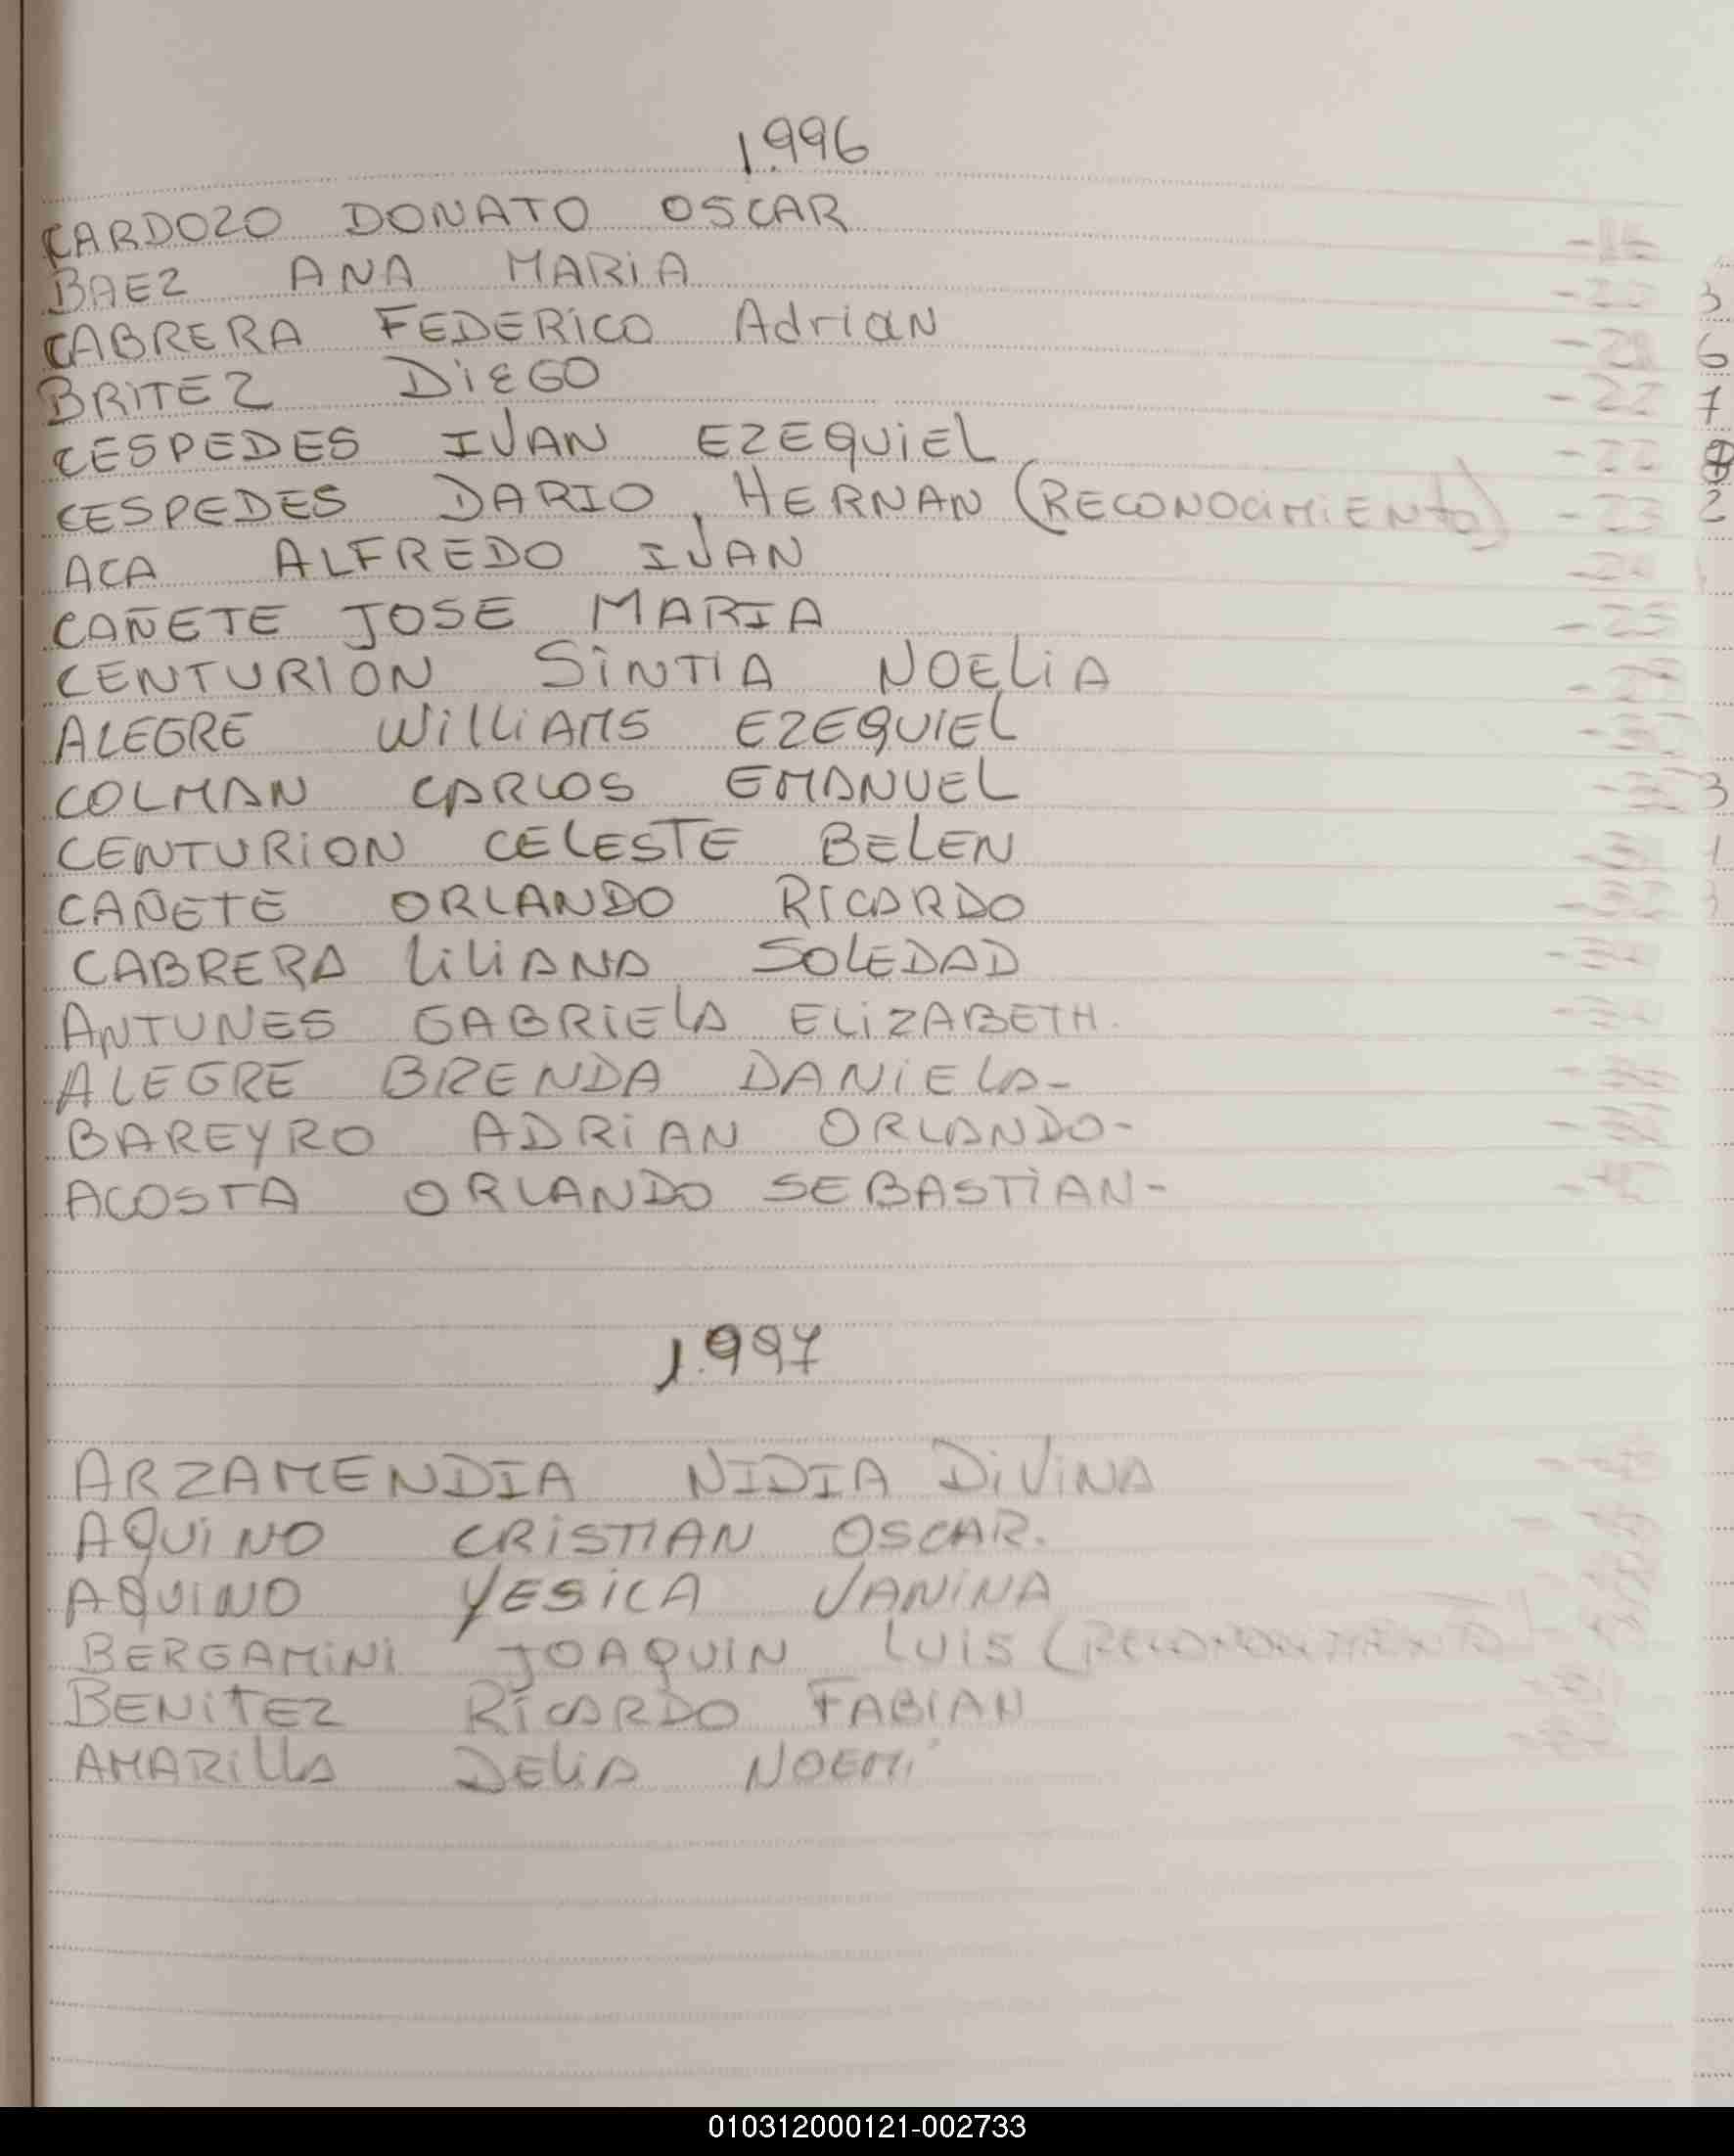 1.996
CARDOZO DONATO OSCAR
BAEZ ANA MARIA
CABRERA FEDERICO Adrian
BRITEZ DIEGO
CESPEDES IVAN EZEQUIEL -22
CESPEDES DARIO, HERNAN (RECONOCIMIENTO) -23
ACA ALFREDO IVAN
CAÑETE JOSE MARIA -23
CENTURION SINTIA NOELIA
ALEGRE WILLIAMS EZEQUIEL
COLMAN CARLOS EMANUEL
CENTURION CELESTE BELEN
CAÑETE ORLANDO RICARDO
CABRERA LILIANA SOLEDAD
ANTUNES GABRIELA ELIZABETH.
ALEGRE BRENDA DANIELA-
BAREYRO ADRIAN ORLANDO-
ACOSTA ORLANDO SEBASTIAN-
1.997
ARZAMENDIA NIDIA DIVINA
AQUINO CRISTIAN OSCAR.
AQUINO YESICA VANINA
BERGAMINI JOAQUIN LUIS (RECONOCIMIENTO)
BENITEZ RICARDO FABIAN
AMARILLA DELIA NOEMÍ
010312000121-002733